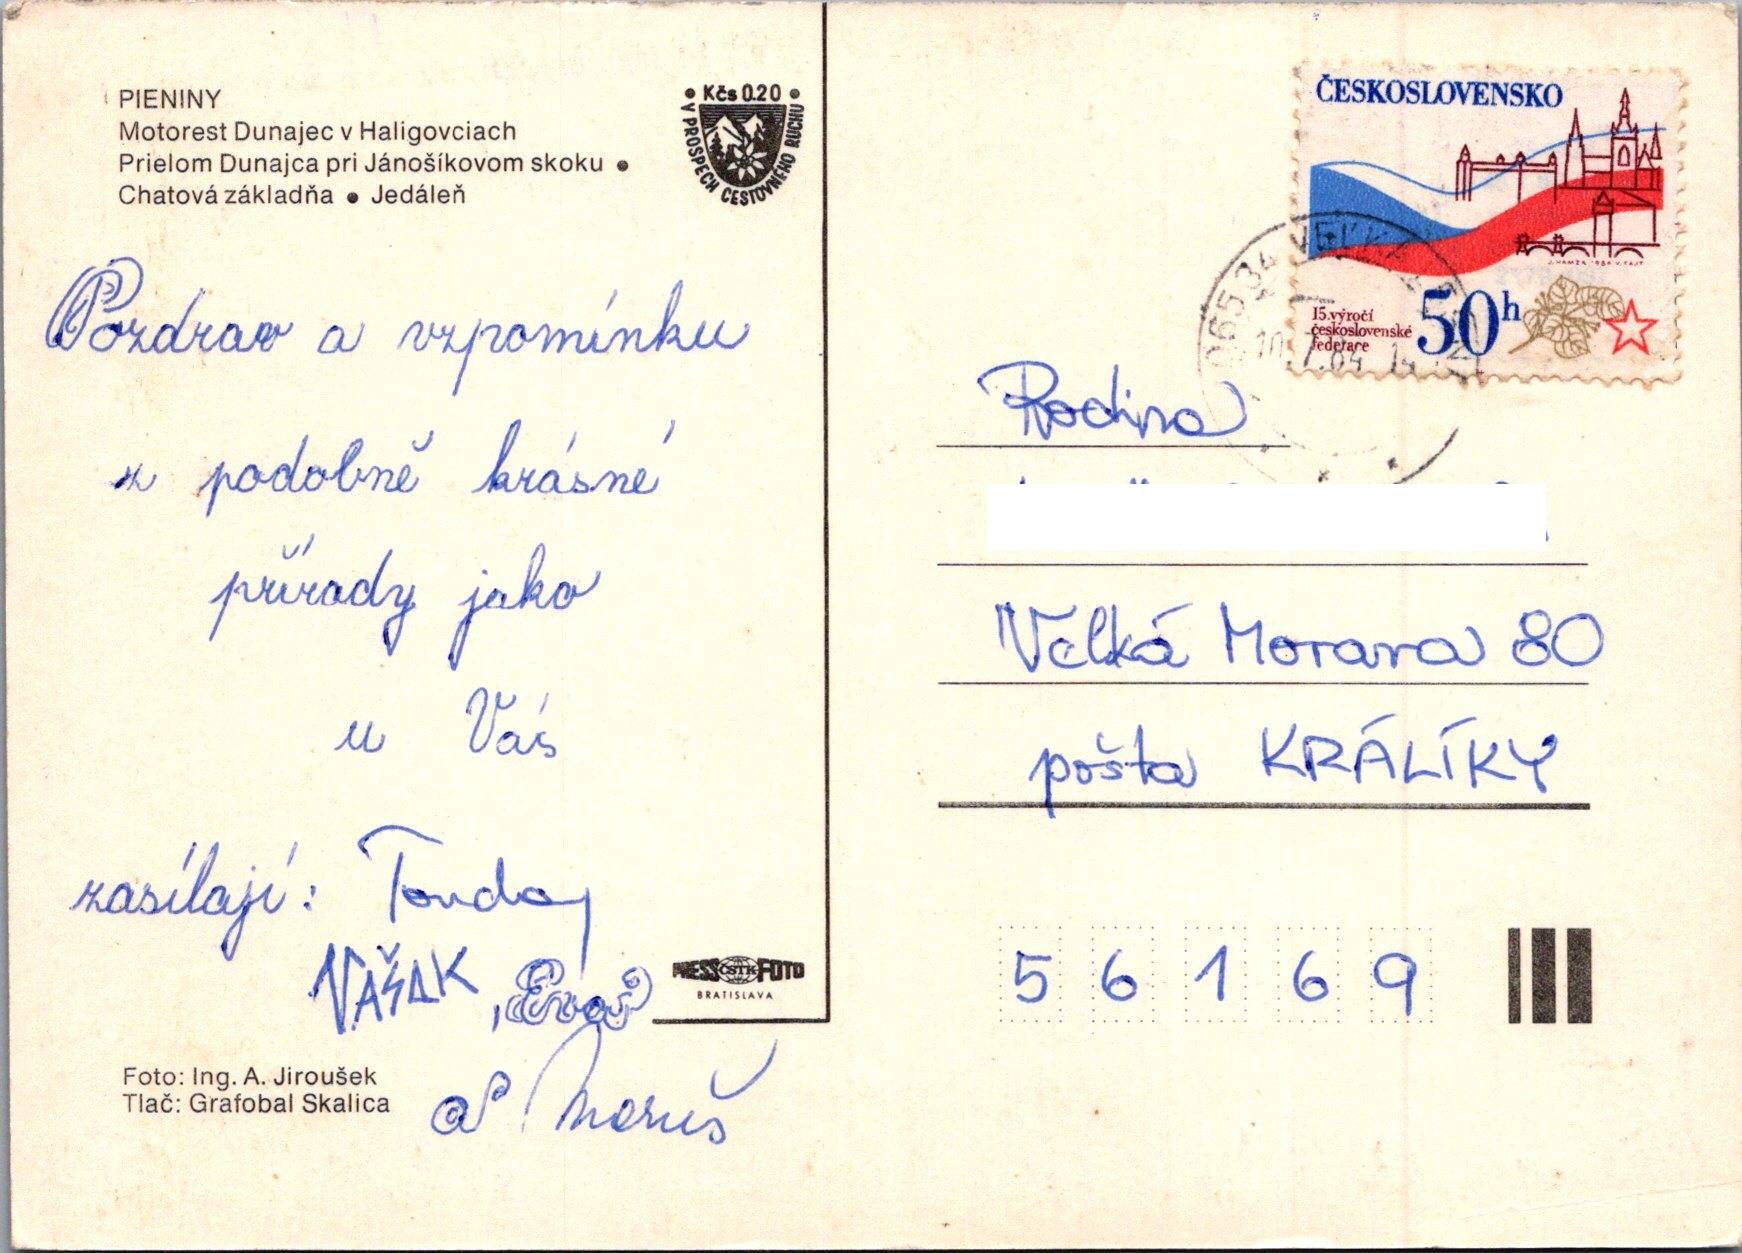 PIENINY
Motorest Dunajec v Haligovciach
Prielom Dunajca pri Jánošíkovom skoku •
Chatová základňa • Jedáleň
• Kčs 0.20 •
V PROSPECH CESTOVNÉHO RUCHU
Pozdrav a vzpomínku
z podobně krásné
přírody jako
u Vás
zasílají: Tonda,
VAŠAK, Eva
a Maruš
PRESS ČSTK FOTO
BRATISLAVA
Foto: Ing. A. Jiroušek
Tlač: Grafobal Skalica
ČESKOSLOVENSKO
J. HAMZA 1984 V. FAJT
15. výročí
československé
federace
50h
065 34 VEĽKÁ
10. 7. 84 14
Rodina
Velká Morava 80
pošta KRÁLÍKY
56169